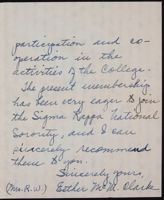 participation and co-
operation in the
activities of the College.
The present membership
has been very eager to join
the Sigma Kappa National
Sorority, and I can
sincerely recommend
them to you.
Sincerely yours,
(Mrs. R.W.) Esther McM. Clarke